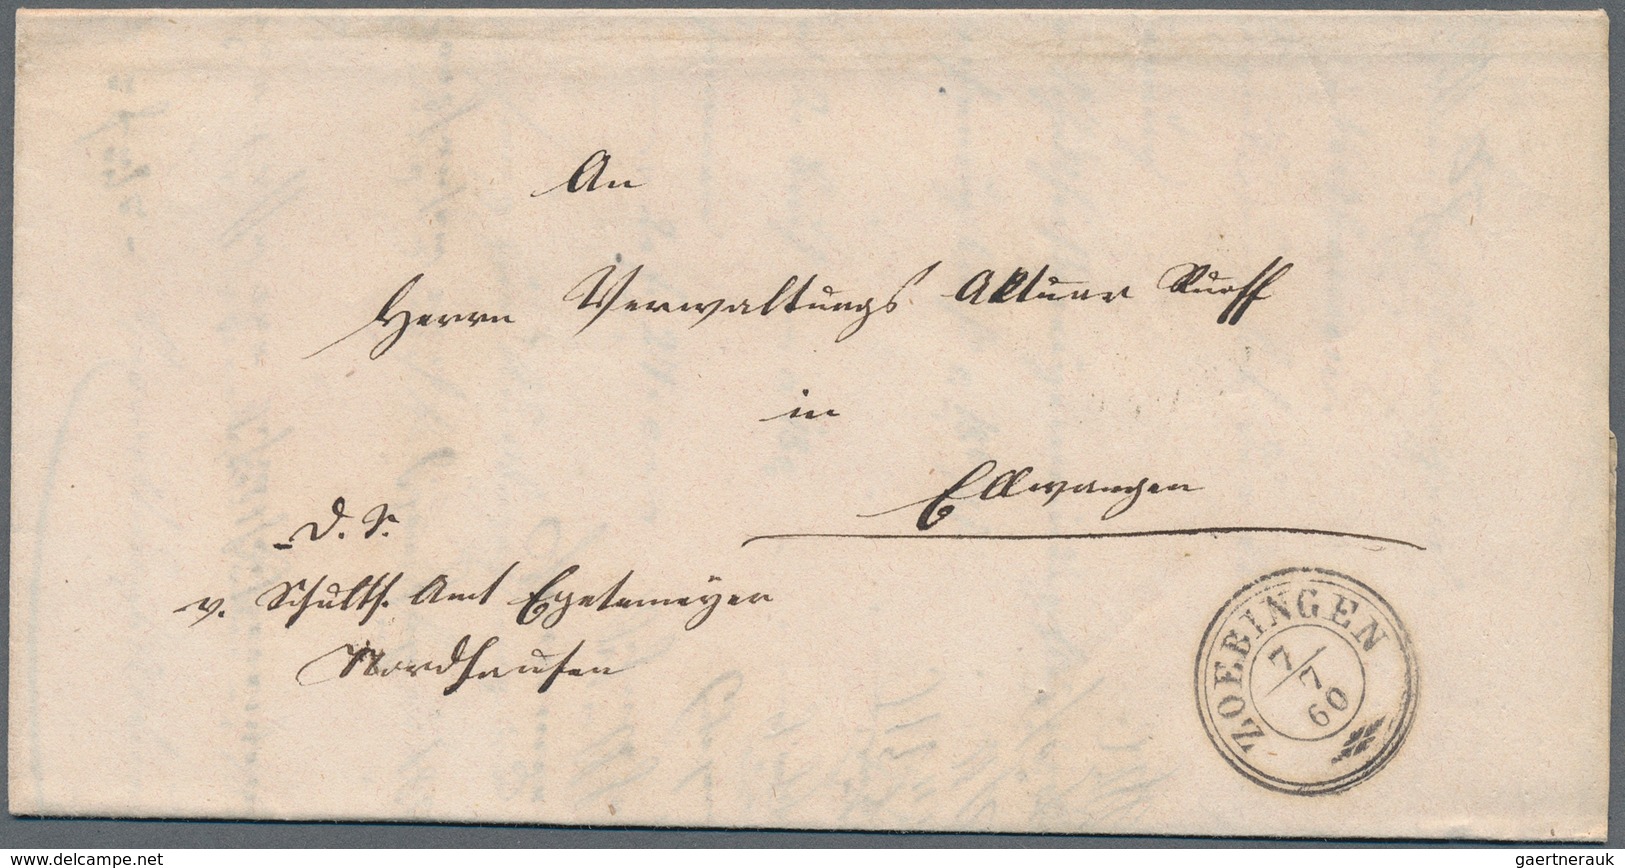 An
Herrn Verwaltungs Aktuar Ruoff
in
Ellwangen
D. S.
v. Schulth. Amt Egetemeyer
Nordhausen
ZOEBINGEN
7/7
60
www.delcampe.net
gaertnerauk